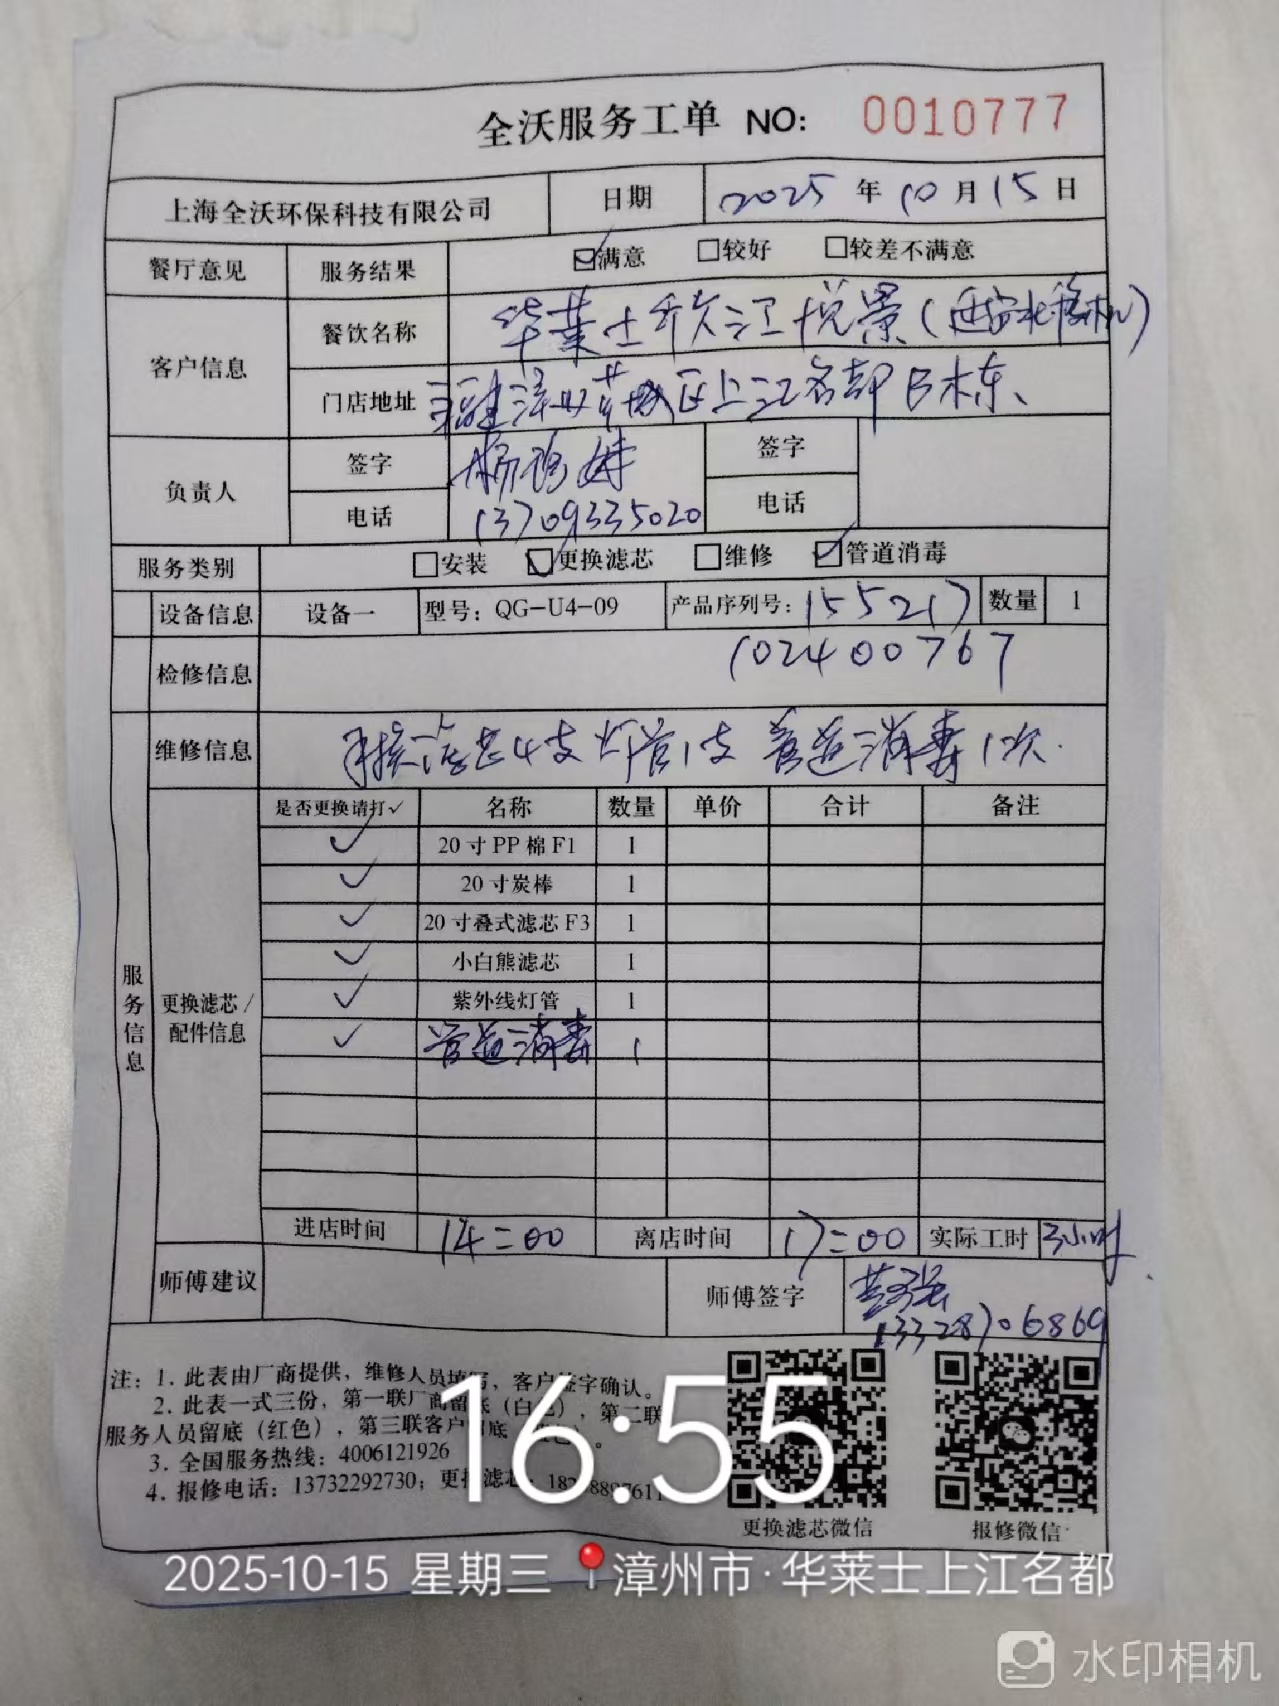 全沃服务工单 NO: 0010777
上海全沃环保科技有限公司 日期 2025年10月15日
餐厅意见 服务结果 ☑满意 □较好 □较差不满意
客户信息 餐饮名称 华莱士 江悦景(西安北移机)
门店地址 福建漳州芗城区上江名都B栋
负责人 签字 杨 签字
电话 13709335020 电话
服务类别 □安装 ☑更换滤芯 □维修 ☑管道消毒
设备信息 设备一 型号:QG-U4-09 产品序列号:155217 数量 1
102400767
检修信息
维修信息 更换滤芯4支 灯管1支 管道消毒1次.
服务信息
更换滤芯/配件信息
是否更换请打✓ 名称 数量 单价 合计 备注
✓ 20寸PP棉F1 1
✓ 20寸炭棒 1
✓ 20寸叠式滤芯F3 1
✓ 小白熊滤芯 1
✓ 紫外线灯管 1
✓ 管道消毒 1
进店时间 14:00 离店时间 17:00 实际工时 3小时
师傅建议 师傅签字
13328706869
注:1.此表由厂商提供,维修人员填写,客户签字确认。
2.此表一式三份,第一联厂商留底(白色),第二联
服务人员留底(红色),第三联客户留底
3.全国服务热线:4006121926
4.报修电话:13732292730;更换滤芯:
更换滤芯微信 报修微信
16:55
2025-10-15 星期三 漳州市·华莱士上江名都
水印相机